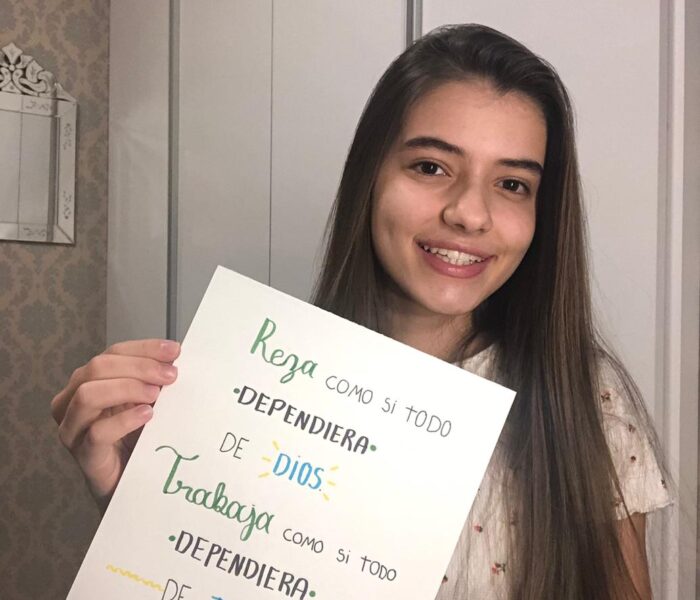 Reza COMO SI TODO
•DEPENDIERA•
DE DIOS.
Trabaja COMO SI TODO
•DEPENDIERA•
DE